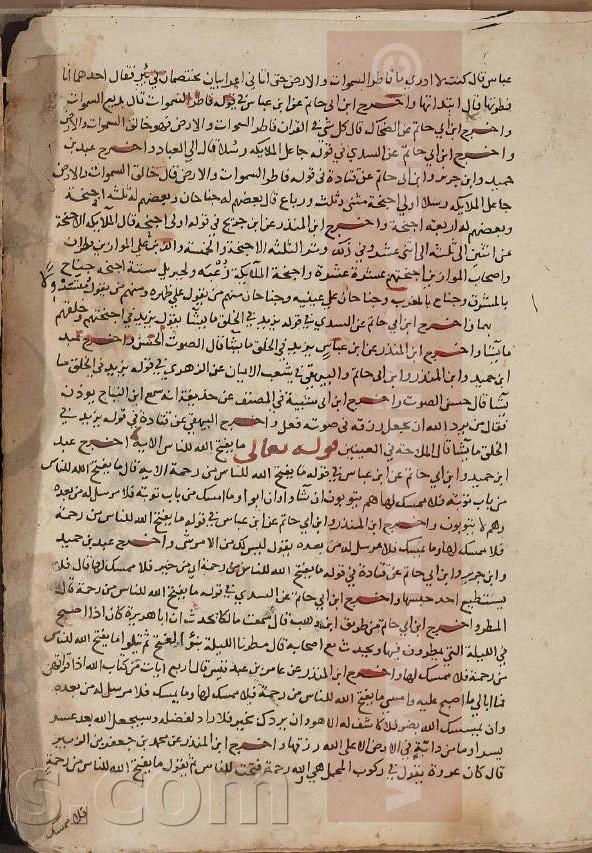 عباس قال كنت لا ادرى ما فاطر السموات والارض حتى اتانى اعرابيان يختصمان فى بير فقال احدهما انا
فطرتها قال ابتداتها واخرج ابن ابى حاتم عن ابن عباس فى قوله فاطر السموات قال بديع السموات
واخرج ابن ابى حاتم عن الضحاك قال كل شى فى القران فاطر السموات والارض فهو خالق السموات والارض
واخرج ابن ابى حاتم عن السدى فى قوله جاعل الملايكه رسلا قال الى العباد واخرج عبد بن
حميد وابن جرير وابن ابى حاتم عن قتادة فى قوله فاطر السموات والارض قال خالق السموات والارض
جاعل الملايكه رسلا اولى اجنحة مثنى وثلث ورباع قال بعضهم له جناحان وبعضهم له ثلثه اجنحة
وبعضهم له اربعة اجنحة واخرج ابن المنذر عن ابن جريج فى قوله اولى اجنحة قال الملايكه الاجنحة
من اثنين الى ثلثه الى اثنى عشر وفى ذلك وتر الثلثه الاجنحة والخمسة والذين على الموازين
واصحاب الموازين اجنحتهم عشرة عشرة واجنحة الملايكة زغبه ولجبريل ستة اجنحة جناح
بالمشرق وجناح بالمغرب وجناحان على عينيه وجناحان منهم من يقول على ظهره ومنهم من يقول
بها واخرج ابن ابى حاتم عن السدى فى قوله يزيد فى الخلق ما يشا يقول يزيد فى اجنحتهم وخلقهم
ما يشا واخرج ابن المنذر عن ابن عباس يزيد فى الخلق ما يشا قال الصوت الحسن واخرج عبد
ابن حميد وابن المنذر وابن ابى حاتم والبيهقى فى شعب الايمان عن الزهرى فى قوله يزيد فى الخلق ما
يشا قال حسن الصوت واخرج ابن ابى شيبة فى المصنف عن حذيفة انه سمع ابن التياح يوذن
فقال من يرد الله ان يجعل رزقه فى صوته فعل واخرج البيهقى عن قتادة فى قوله يزيد فى
الخلق ما يشا قال الملاحة فى العينين قوله تعالى ما يفتح الله للناس الاية اخرج عبد
ابن حميد وابن ابى حاتم عن ابن عباس فى قوله ما يفتح الله للناس من رحمة الاية قال ما يفتح الله للناس
من باب توبة فلا ممسك لها هم يتوبون ان شاوا وان ابوا وما امسك من باب توبة فلا مرسل له من بعده
وهم لا يتوبون واخرج ابن المنذر وابن ابى حاتم عن ابن عباس فى قوله ما يفتح الله للناس من رحمة
فلا ممسك لها وما يمسك فلا مرسل له من بعده يقول ليس لك من الامر شى واخرج عبد بن حميد
وابن جرير وابن ابى حاتم عن قتادة فى قوله ما يفتح الله للناس من رحمة اى من خير فلا ممسك لها قال فلا
يستطيع احد حبسها واخرج ابن ابى حاتم عن السدى فى قوله ما يفتح الله للناس من رحمة قال
المطر واخرج ابن ابى حاتم من طريق ابن وهب قال سمعت مالكا يحدث ان ابا هريرة كان اذا اصبح
فى الليلة التى يمطرون فيها وتحدث مع اصحابه قال مطرنا الليلة بنوء الفتح ثم يتلوا ما يفتح الله للناس
من رحمة فلا ممسك لها واخرج ابن المنذر عن عامر بن عبد قيس قال اربع ايات من كتاب الله اذا قراتهن
فما ابالى ما اصبح عليه وامسى ما يفتح الله للناس من رحمة فلا ممسك لها وما يمسك فلا مرسل له من بعده
وان يمسسك الله بضر فلا كاشف له الا هو وان يردك بخير فلا راد لفضله وسيجعل الله بعد عسر
يسرا وما من دابة فى الارض الا على الله رزقها واخرج ابن المنذر عن محمد بن جعفر بن الزبير
قال كان عروة يقول فى ركوب المحمل هى والله رحمة فتحت للناس ثم يقول ما يفتح الله للناس من رحمة
فلا ممسك
s.com